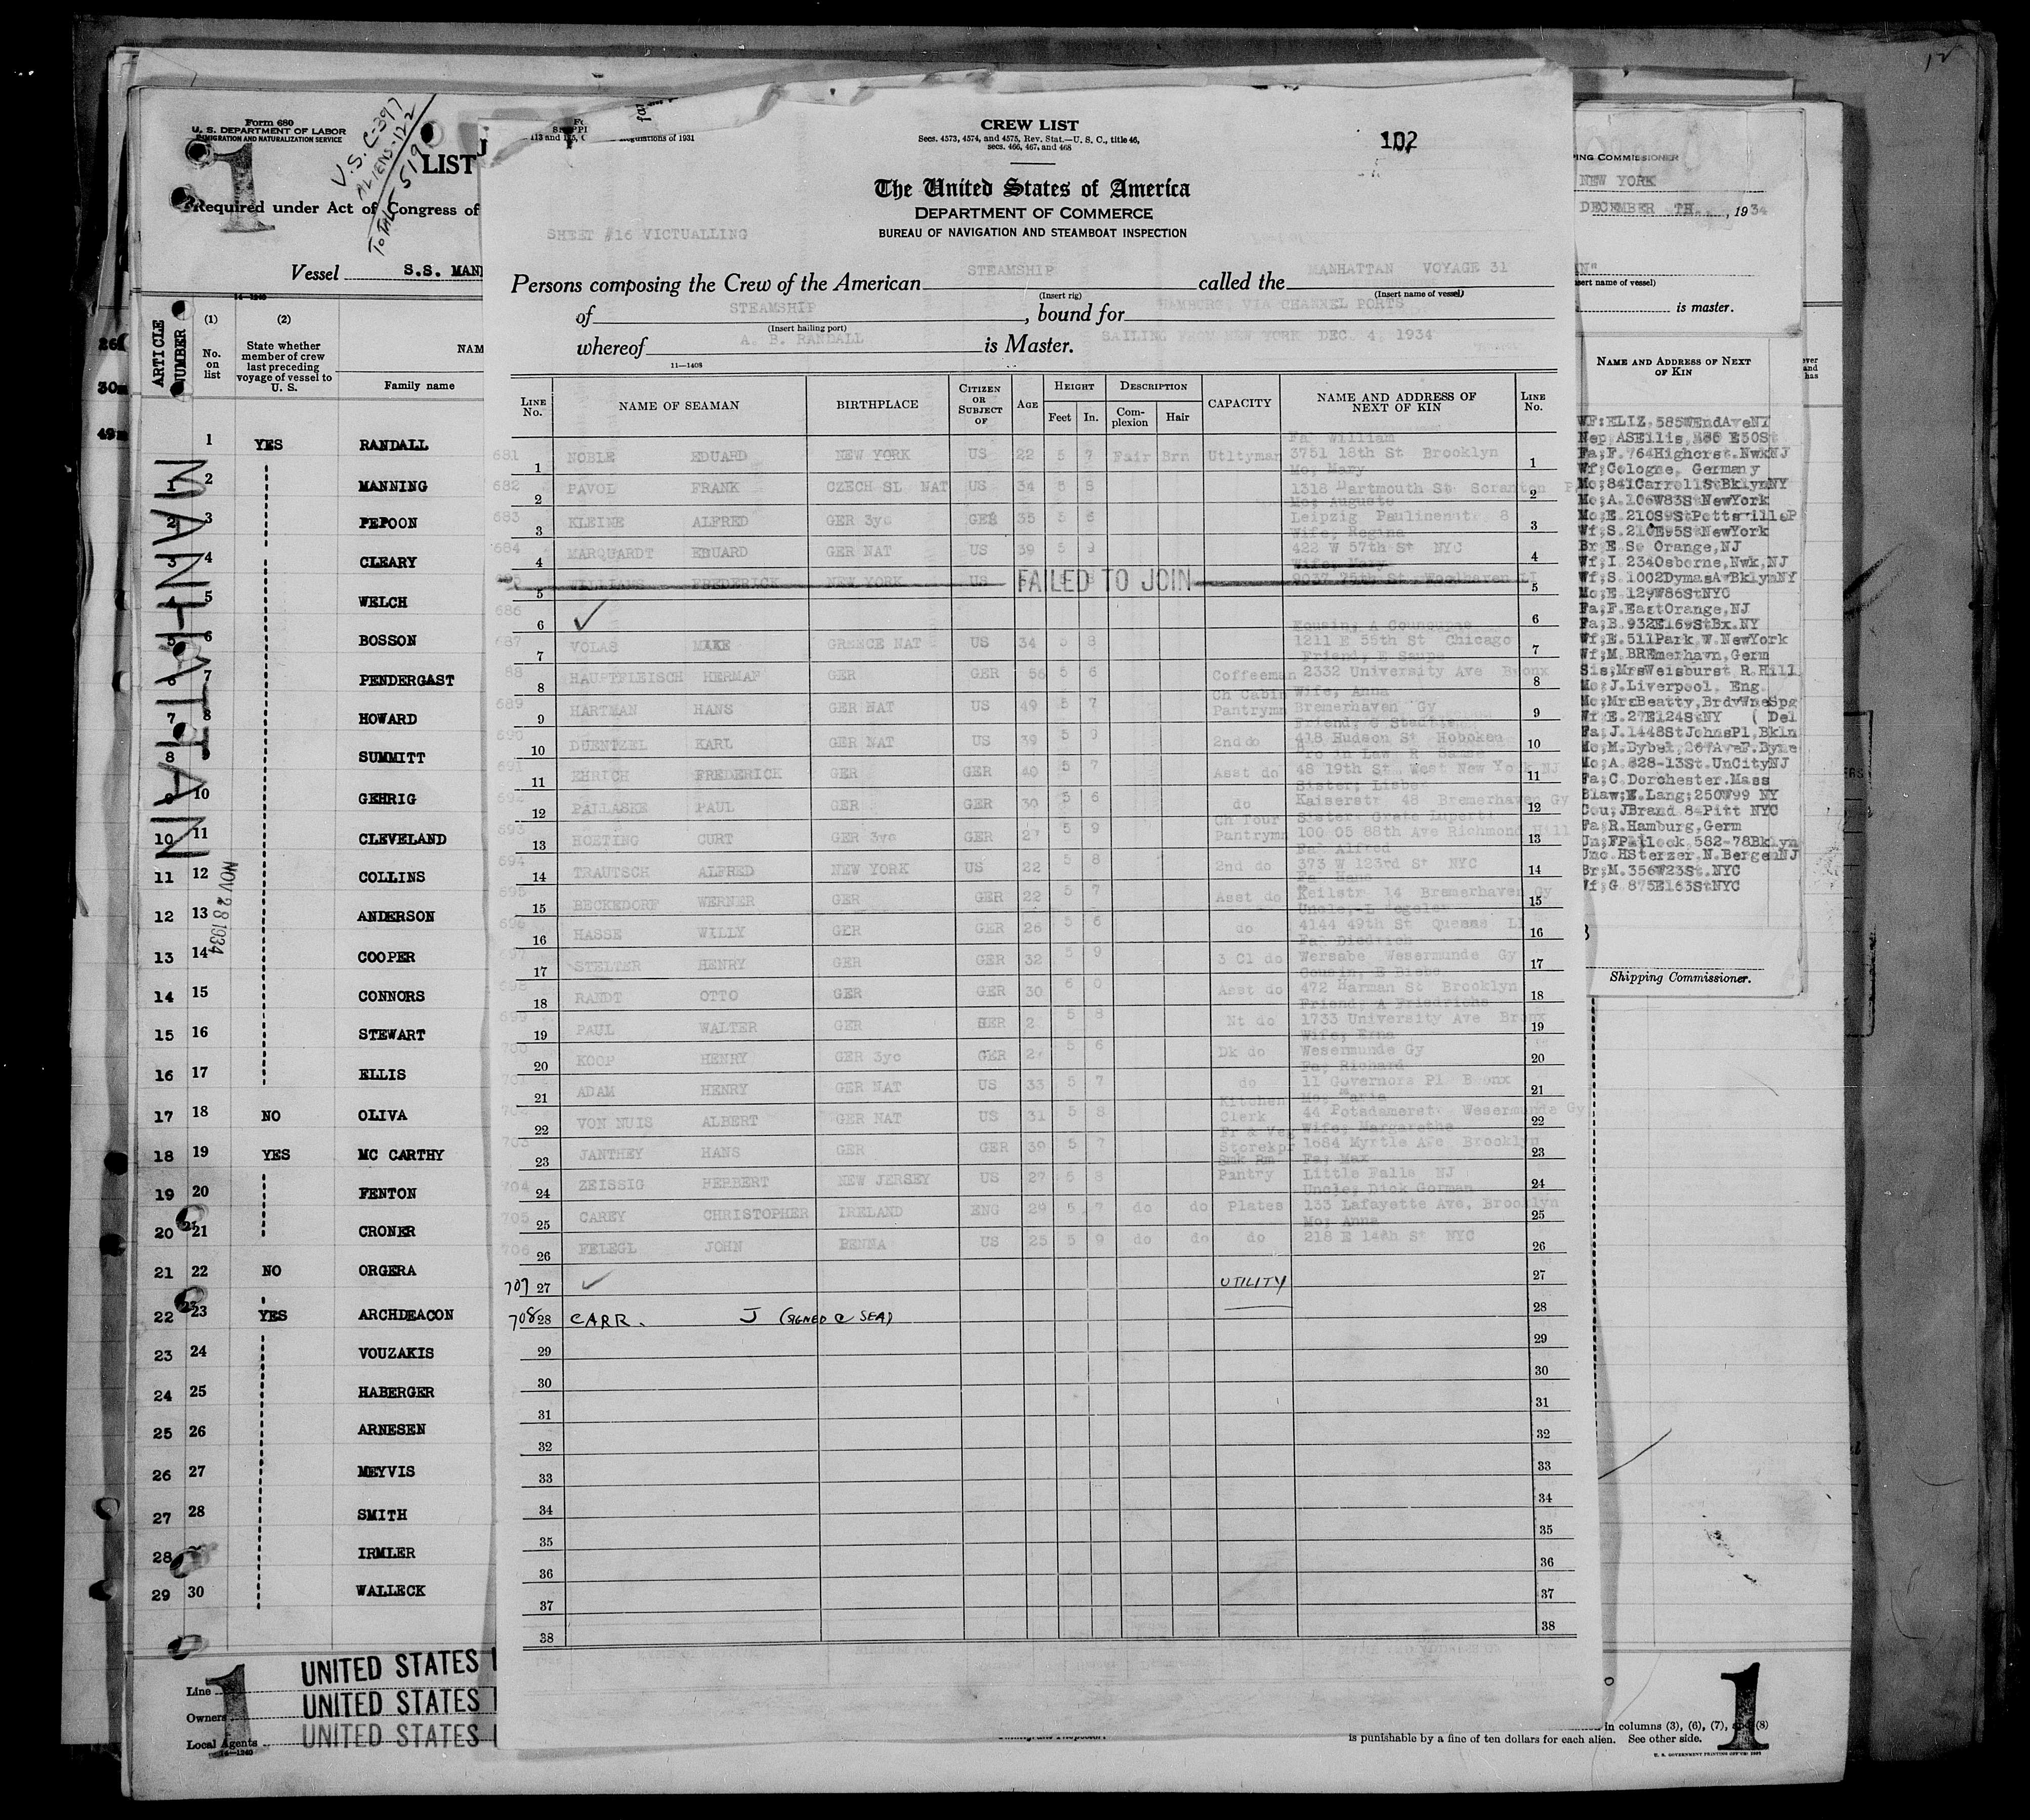 Form 680
U. S. DEPARTMENT OF LABOR
IMMIGRATION AND NATURALIZATION SERVICE
1
U.S. C-397
ALIENS-122
TOTAL 519
LIST
Required under Act of Congress of
Vessel S.S. MAN
14-1240
ARTICLE NUMBER
(1) (2)
No. on list
State whether member of crew last preceding voyage of vessel to U. S.
NAM
Family name
MANHATTAN
NOV 28 1934
1 YES RANDALL
1 2 MANNING
2 3 PEPOON
3 4 CLEARY
4 5 WELCH
5 6 BOSSON
6 7 PENDERGAST
7 8 HOWARD
8 SUMMITT
9 10 GEHRIG
10 11 CLEVELAND
11 12 COLLINS
12 13 ANDERSON
13 14 COOPER
14 15 CONNORS
15 16 STEWART
16 17 ELLIS
17 18 NO OLIVA
18 19 YES MC CARTHY
19 20 FENTON
20 21 CRONER
21 22 NO ORGERA
22 23 YES ARCHDEACON
23 24 VOUZAKIS
24 25 HABERGER
25 26 ARNESEN
26 27 MEYVIS
27 28 SMITH
28 IRMLER
29 30 WALLECK
Line UNITED STATES
Owners UNITED STATES
Local Agents UNITED STATES
14-1240
1
CREW LIST
Secs. 4573, 4574, and 4575, Rev. Stat.—U. S. C., title 46,
secs. 466, 467, and 468
102
The United States of America
DEPARTMENT OF COMMERCE
BUREAU OF NAVIGATION AND STEAMBOAT INSPECTION
SHEET #16 VICTUALLING
Persons composing the Crew of the American STEAMSHIP called the MANHATTAN VOYAGE 31
(Insert rig) (Insert name of vessel)
of STEAMSHIP, bound for HAMBURG, VIA CHANNEL PORTS
(Insert hailing port)
whereof A. B. RANDALL is Master. SAILING FROM NEW YORK DEC. 4, 1934
11-1408
LINE No. NAME OF SEAMAN BIRTHPLACE CITIZEN OR SUBJECT OF AGE HEIGHT Feet In. DESCRIPTION Complexion Hair CAPACITY NAME AND ADDRESS OF NEXT OF KIN LINE No.
Fa William
681 1 NOBLE EDUARD NEW YORK US 22 5 7 Fair Brn Utltyman 3751 18th St Brooklyn 1
Mo; Mary
682 2 PAVOL FRANK CZECH SL NAT US 34 5 8 1318 Dartmouth St Scranton 2
Mo; Auguste
683 3 KLEINE ALFRED GER 3yc GER 35 5 6 Leipzig Paulinenstr 8 3
Wife, Regina
684 4 MARQUARDT EDUARD GER NAT US 39 5 9 422 W 57th St NYC 4
Wife, Mary
5 WILLIAMS FREDERICK NEW YORK US FAILED TO JOIN 9037 75th St. Woodhaven LI 5
686 6 ✓ 6
687 7 VOLAS MIKE GREECE NAT US 34 5 8 1211 E 55th St Chicago 7
88 8 HAUPTFLEISCH HERMAN GER GER 56 5 6 Coffeeman 2332 University Ave Bronx 8
Wife; Anna
689 9 HARTMAN HANS GER NAT US 49 5 7 Ch Cabin Pantrymn Bremerhaven Gy 9
690 10 DUENTZEL KARL GER NAT US 39 5 9 2nd do 418 Hudson St Hoboken 10
691 11 EHRICH FREDERICK GER GER 40 5 7 Asst do 48 19th St West New York NJ 11
692 12 PALLASKE PAUL GER GER 30 5 6 do Kaiserstr 48 Bremerhaven Gy 12
693 13 HOETING CURT GER 3yc GER 27 5 9 Ch Tour Pantrymn 100 05 88th Ave Richmond Hill 13
Fa Alfred
694 14 TRAUTSCH ALFRED NEW YORK US 22 5 8 2nd do 373 W 123rd St NYC 14
Fa Hans
695 15 BECKEDORF WERNER GER GER 22 5 7 Asst do Keilstr 14 Bremerhaven Gy 15
696 16 HASSE WILLY GER GER 26 5 6 do 4144 49th St Queens LI 16
Fa Diedrich
697 17 STELTER HENRY GER GER 32 5 9 3 Cl do Wersabe Wesermunde Gy 17
698 18 RANDT OTTO GER GER 30 6 0 Asst do 472 Harman St Brooklyn 18
Friend, A Friedrichs
699 19 PAUL WALTER GER GER 2 5 8 Nt do 1733 University Ave Bronx 19
Wife; Erna
700 20 KOOP HENRY GER 3yc GER 2 5 6 Dk do Wesermunde Gy 20
Fa; Richard
701 21 ADAM HENRY GER NAT US 33 5 7 do 11 Governors Pl Bronx 21
Mo; Maria
22 VON NUIS ALBERT GER NAT US 31 5 8 Kitchen Clerk 44 Potsdamerstr Wesermunde Gy 22
Wife; Margarethe
703 23 JANTHEY HANS GER GER 39 5 7 Fr & Veg Storekpr 1684 Myrtle Ave Brooklyn 23
Fa; Max
704 24 ZEISSIG HERBERT NEW JERSEY US 27 5 8 Smk Rm Pantry Little Falls NJ 24
Uncle; Dick Gorman
705 25 CAREY CHRISTOPHER IRELAND ENG 29 5 7 do do Plates 133 Lafayette Ave, Brooklyn 25
Mo; Anna
706 26 FELEGL JOHN PENNA US 25 5 9 do do do 218 E 14th St NYC 26
707 27 ✓ UTILITY 27
708 28 CARR. J (SIGNED @ SEA) 28
29 29
30 30
31 31
32 32
33 33
34 34
35 35
36 36
37 37
38 38
PING COMMISSIONER
NEW YORK
DECEMBER TH, 1934
(Insert name of vessel)
is master.
NAME AND ADDRESS OF NEXT OF KIN
WF:ELIZ, 585WEndAveNY
Nep ASEllis, M86 E50St
Fa;F.764Highcrst.NwkNJ
Wf;Cologne, Germany
Mo;841CarrollStBklynNY
Mo;A.106W83StNewYork
Mo;E.210S9StPottsvilleP
Wf;S.210E95StNewYork
Br E So Orange,NJ
Wf;I 234Osborne,Nwk,NJ
Wf;S 1002DymasAvBklynNY
Mo;E 129W86StNYC
Fa;F.EastOrange,NJ
Fa;B 932E169StBx.NY
Wf;E.511Park W.NewYork
Wf;M BREmerhavn,Germ
Sis;MrsWeisburst R.Hill
Mo;J.Liverpool, Eng.
Mo;MrsBeatty,BrdvWneSpg
Wf E.27E124StNY ( Del
Fa;J.1448StJohnsPl,Bkln
Mo;A.828-13St.UnCityNJ
Fa;C Dorchester.Mass
Blaw;E.Lang;250W99 NY
Cou;JBrand 84Pitt NYC
Fa;R.Hamburg,Germ
Un;FPallock 582-78Bklyn
Unc HSterzer N.BergenNJ
Br;M.356W23St.NYC
Wf;G 875E163StNYC
Shipping Commissioner.
in columns (3), (6), (7), and (8)
is punishable by a fine of ten dollars for each alien. See other side.
U. S. GOVERNMENT PRINTING OFFICE
1